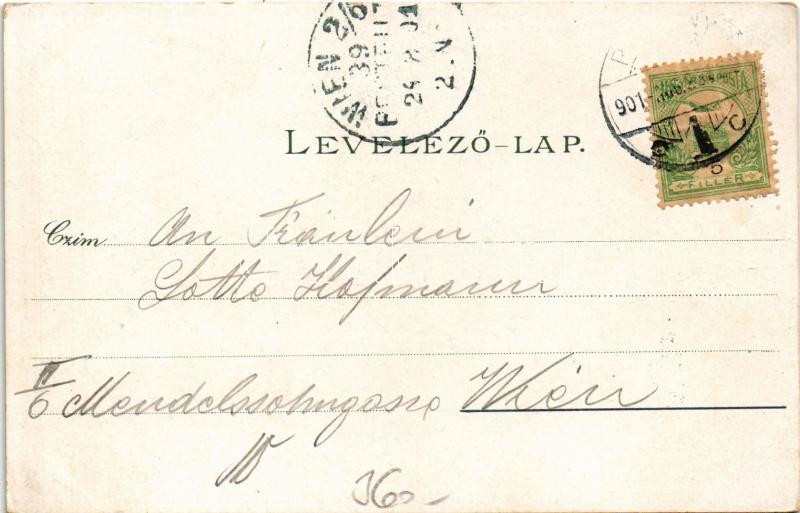 WIEN 2/6
39
BESTELLT
24 8 01
2.N
LEVELEZŐ-LAP.
901
POSTA
5
FILLÉR
Czim An Fräulein
Lotte Hofmann
II
6 Mendelssohngasse Wien
360-